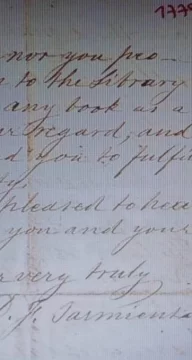 1779
nor you pro-
n to the Library
any book as a
regard, and
d you to fulfil
ty.
pleased to hear
you and your
very truly
D. F. Sarmiento